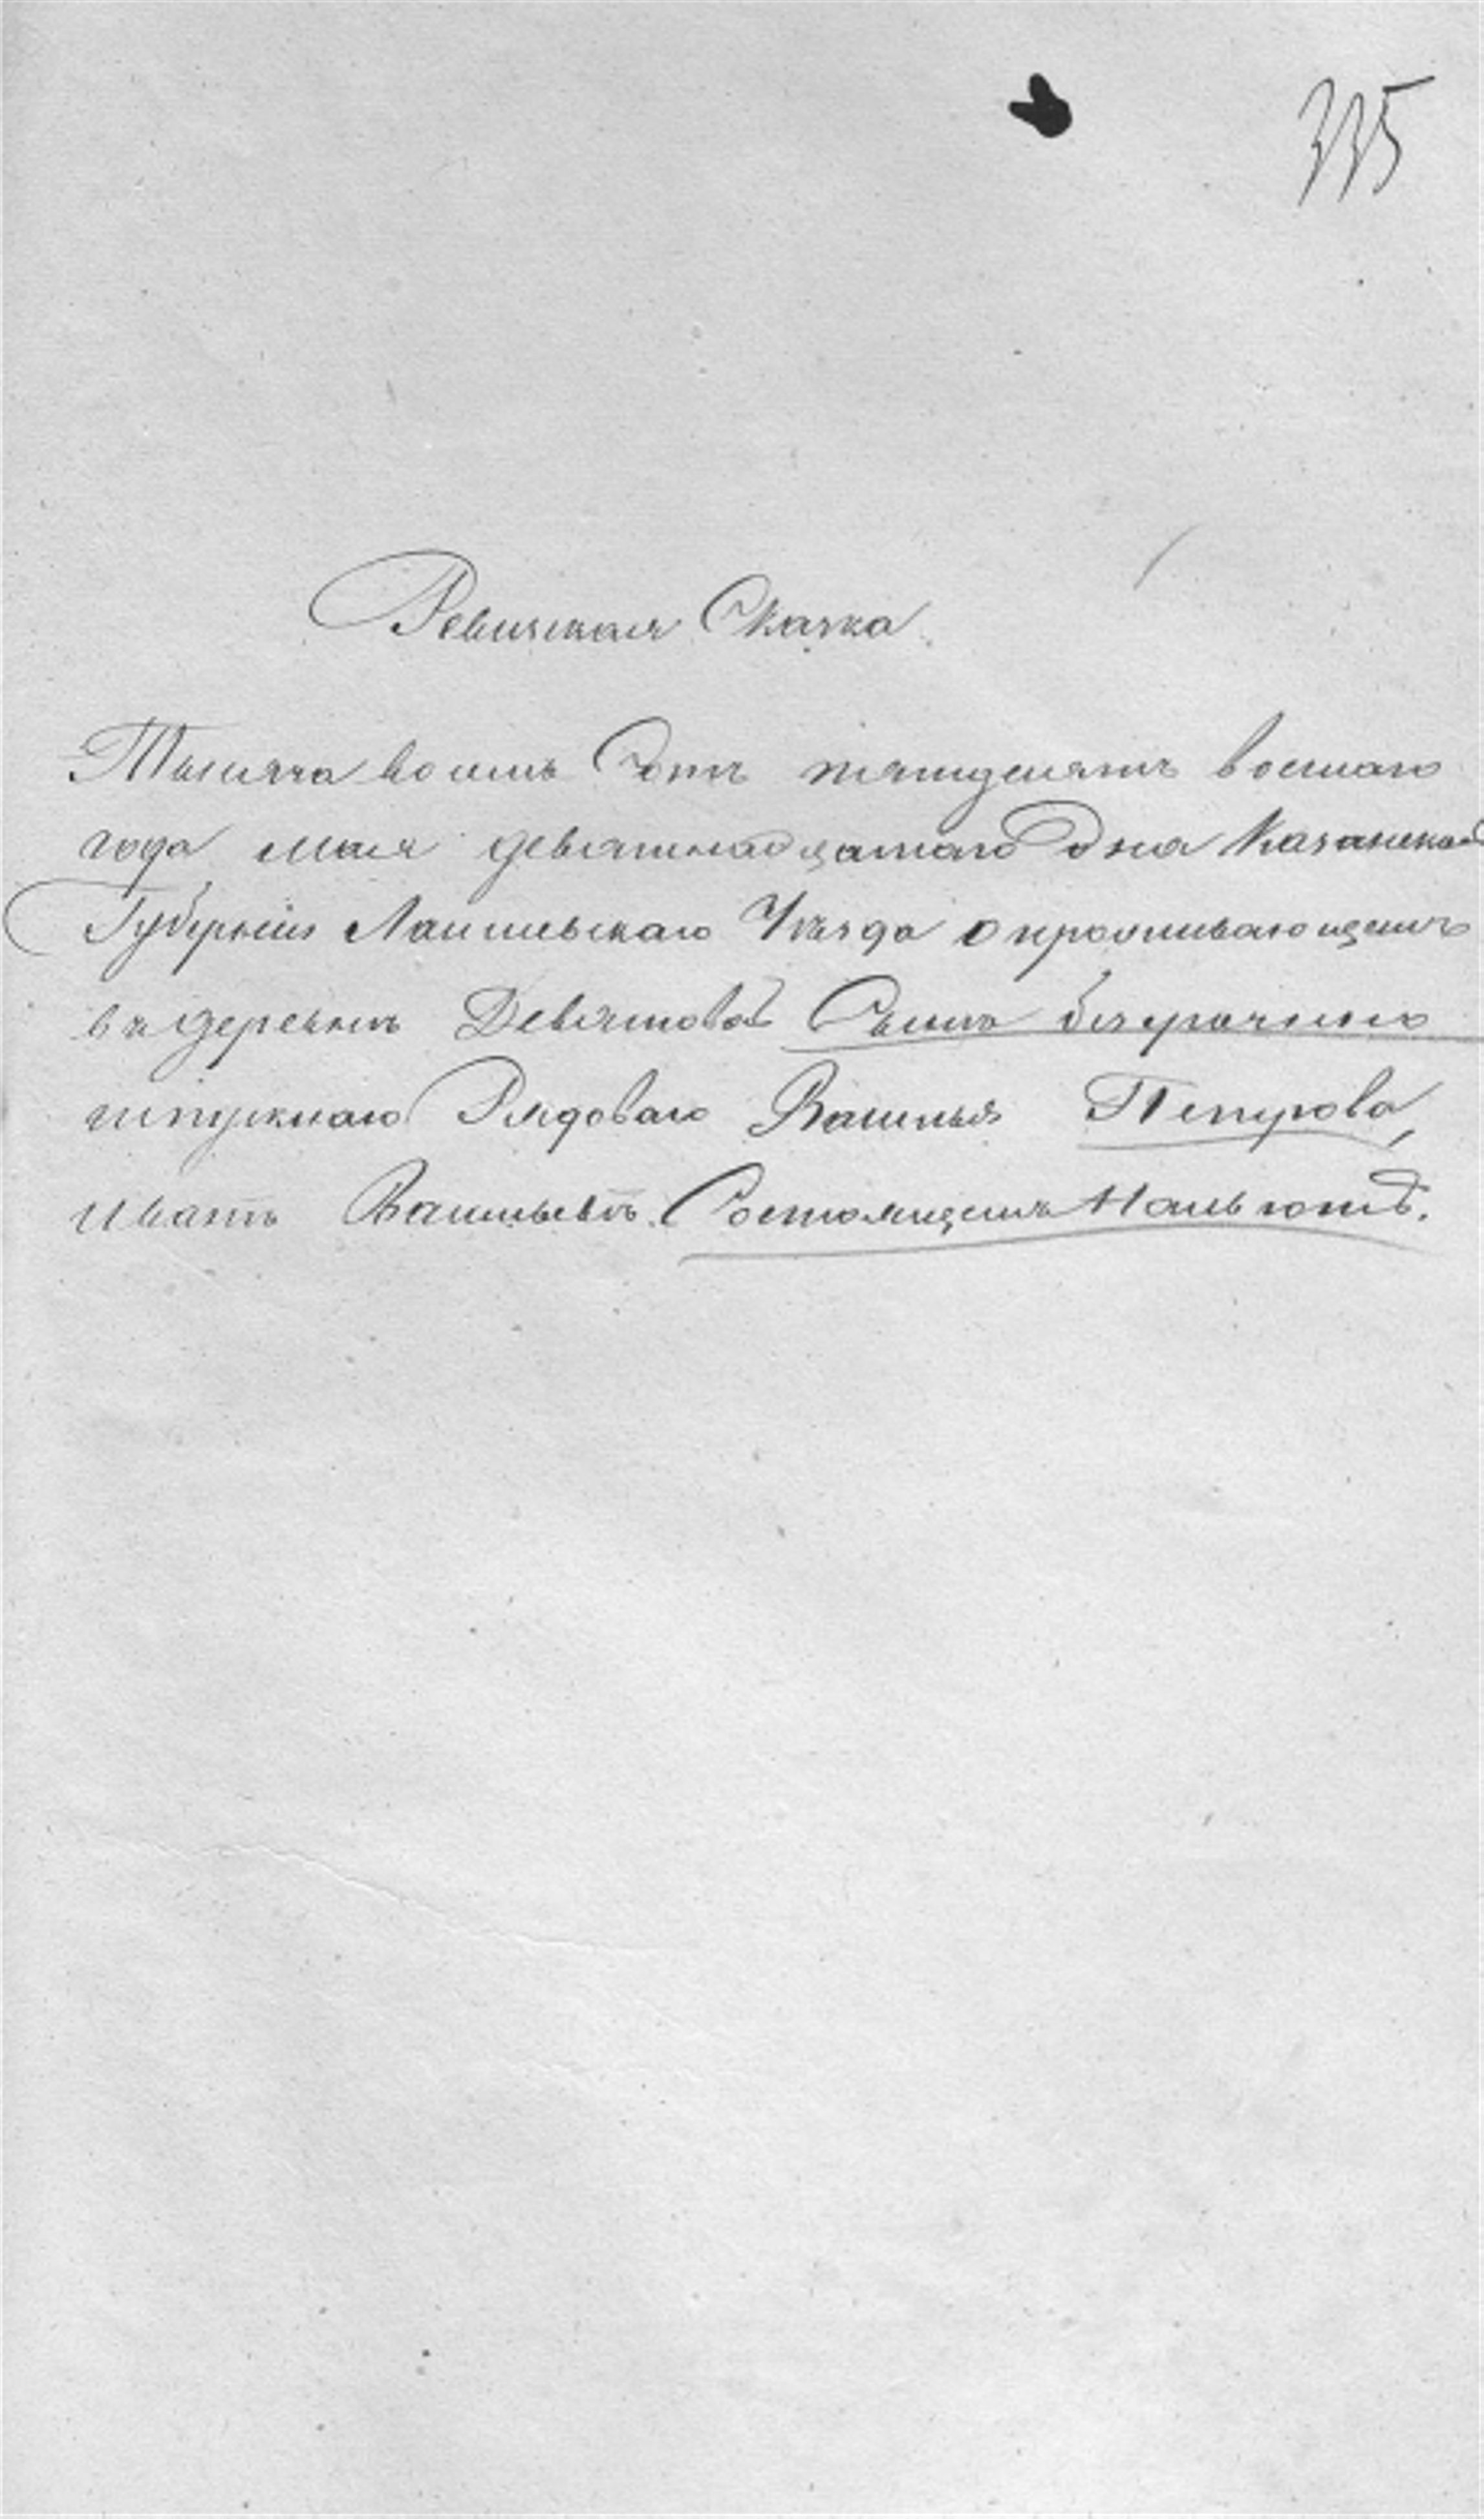 335
Ревизская Сказка
Тысяча восемь Сотъ пятьдесятъ восмаго
года мая девятнадцатаго дня Казанской
Губернии Лаишевскаго Уѣзда о проживающемъ
въ деревнѣ Девятовой Сынѣ безсрочно
отпускнаго Рядоваго Василья Петрова,
Иванѣ Васильевѣ. Состоящемъ На льготѣ.